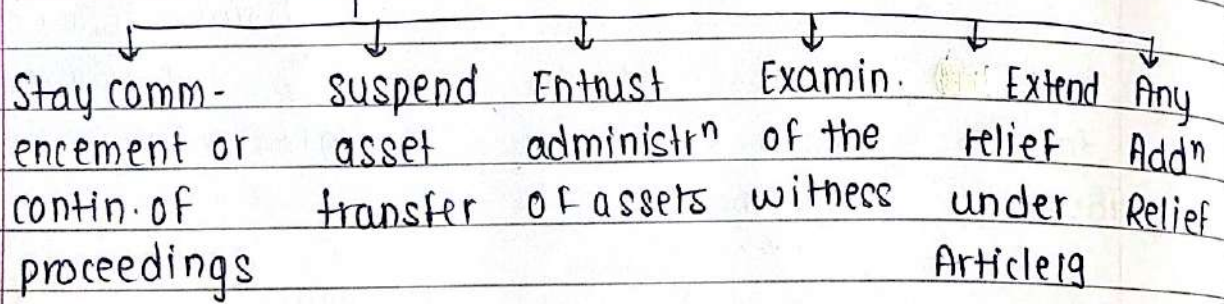 Stay comm-
encement or
contin. of
proceedings
suspend
asset
transfer
Entrust
administrⁿ
of assets
Examin.
of the
witness
Extend
relief
under
Article 19
Any
Addⁿ
Relief